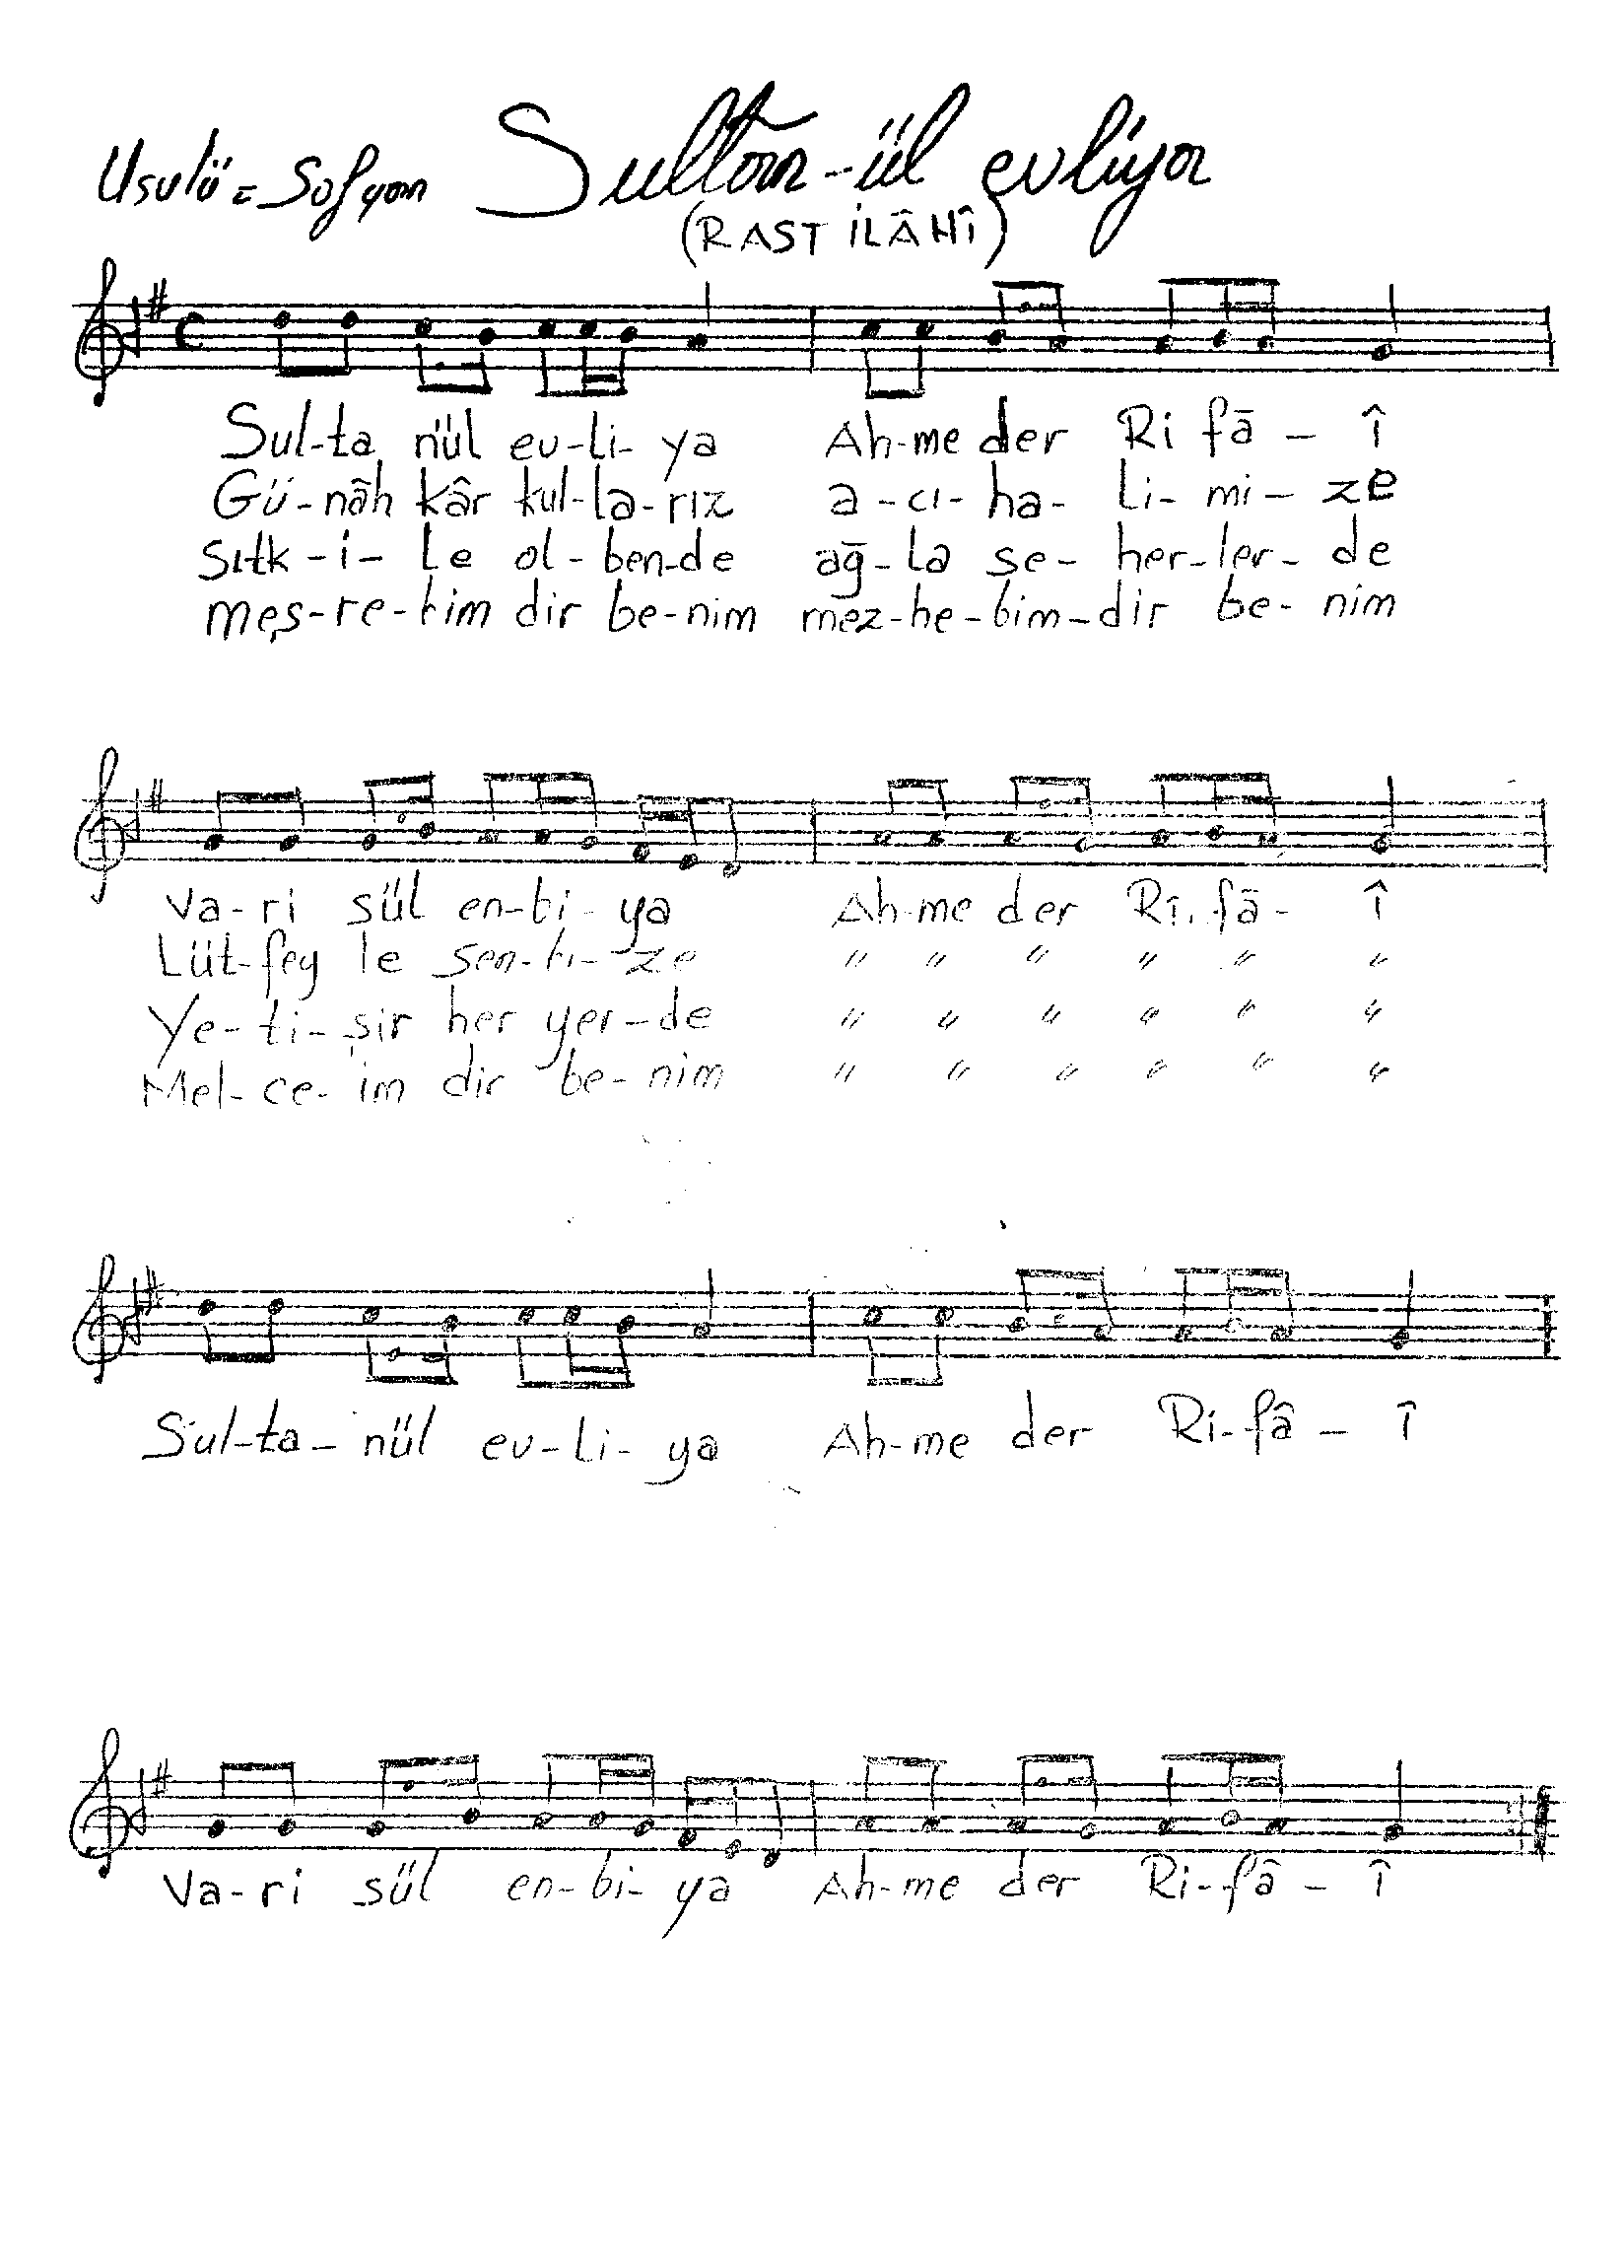 Usulü = Sofyan Sultan-ül evliya
(RAST İLÂHÎ)
Sul-ta nül ev-li-ya Ah-me der Ri fā - î
Gü-nāh kâr kul-la-rız a-cı-ha-li-mi-ze
Sıtk-i-le ol-ben-de ağ-la se-her-ler-de
meş-re-bim dir be-nim mez-he-bim-dir be-nim
va-ri sül en-bi-ya Ah-me der Ri-fā-î
Lüt-fey le sen-bi-ze " " " " " "
Ye-ti-şir her yer-de " " " " " "
Mel-ce-im dir be-nim " " " " " "
Sul-ta-nül ev-li-ya Ah-me der Ri-fâ-î
Va-ri sül en-bi-ya Ah-me der Ri-fâ-î